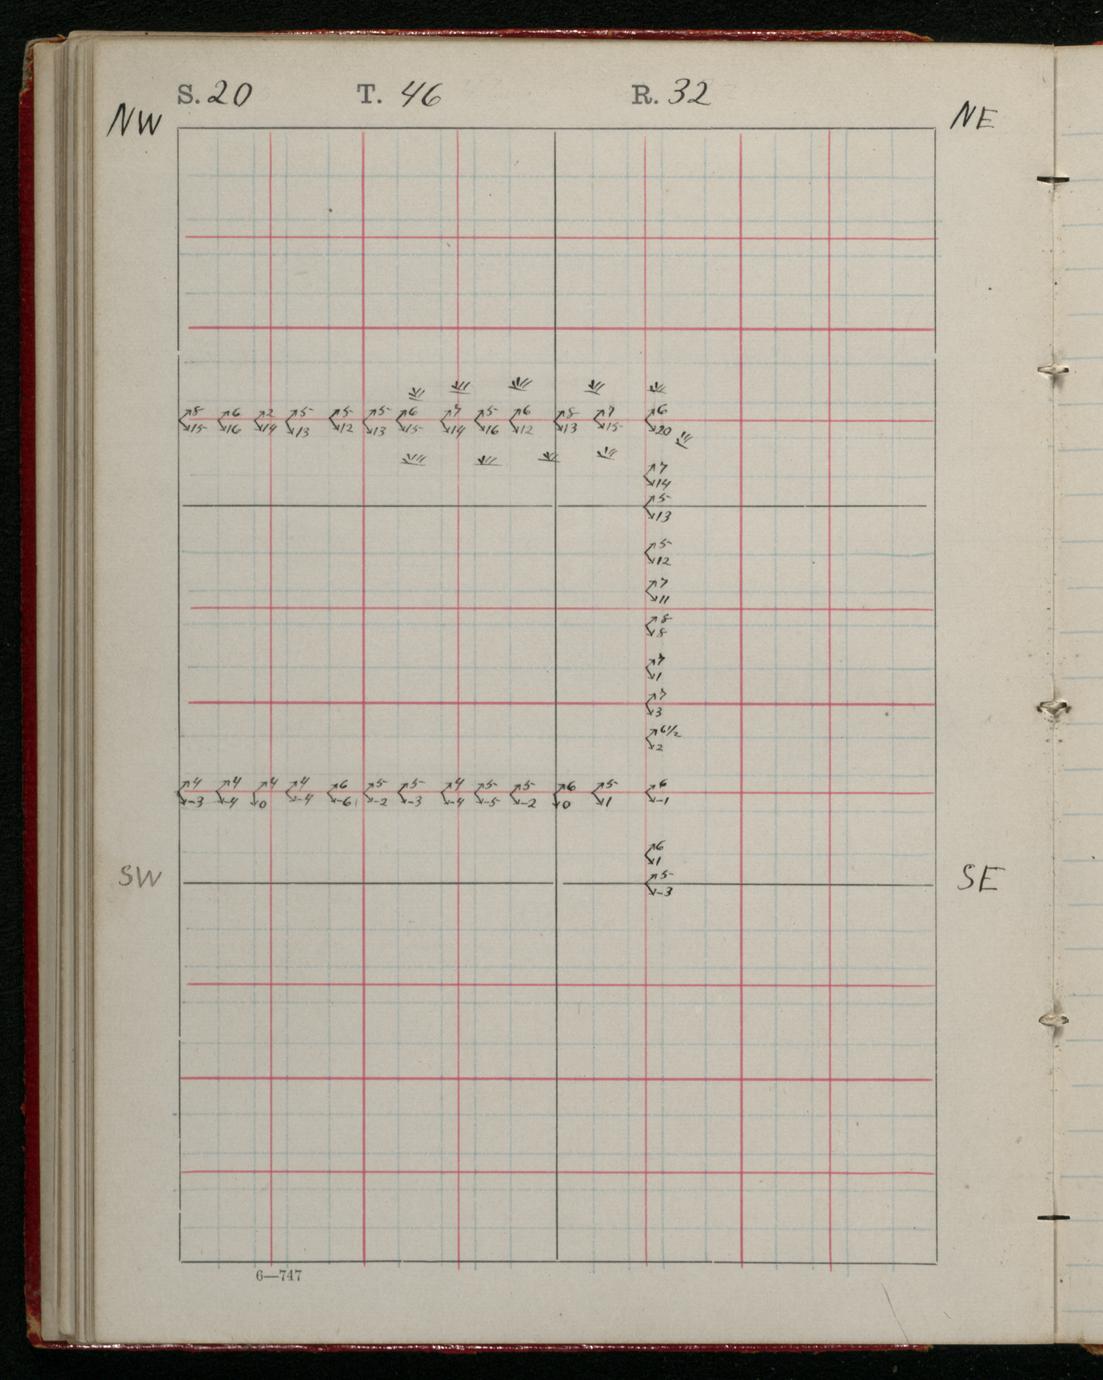 S. 20 T. 46 R. 32
NW NE
5 6 2 5 5 5 6 7 5 6 5 7 6
15 16 14 13 12 13 15 14 16 12 13 15 20
7
14
5
13
5
12
7
11
8
8
7
1
7
3
6½
2
4 4 4 4 6 5 5 4 5 5 6 5 6
-3 -4 0 -4 -6 -2 -3 -4 -5 -2 0 1 -1
6
1
SW SE
5
-3
6—747